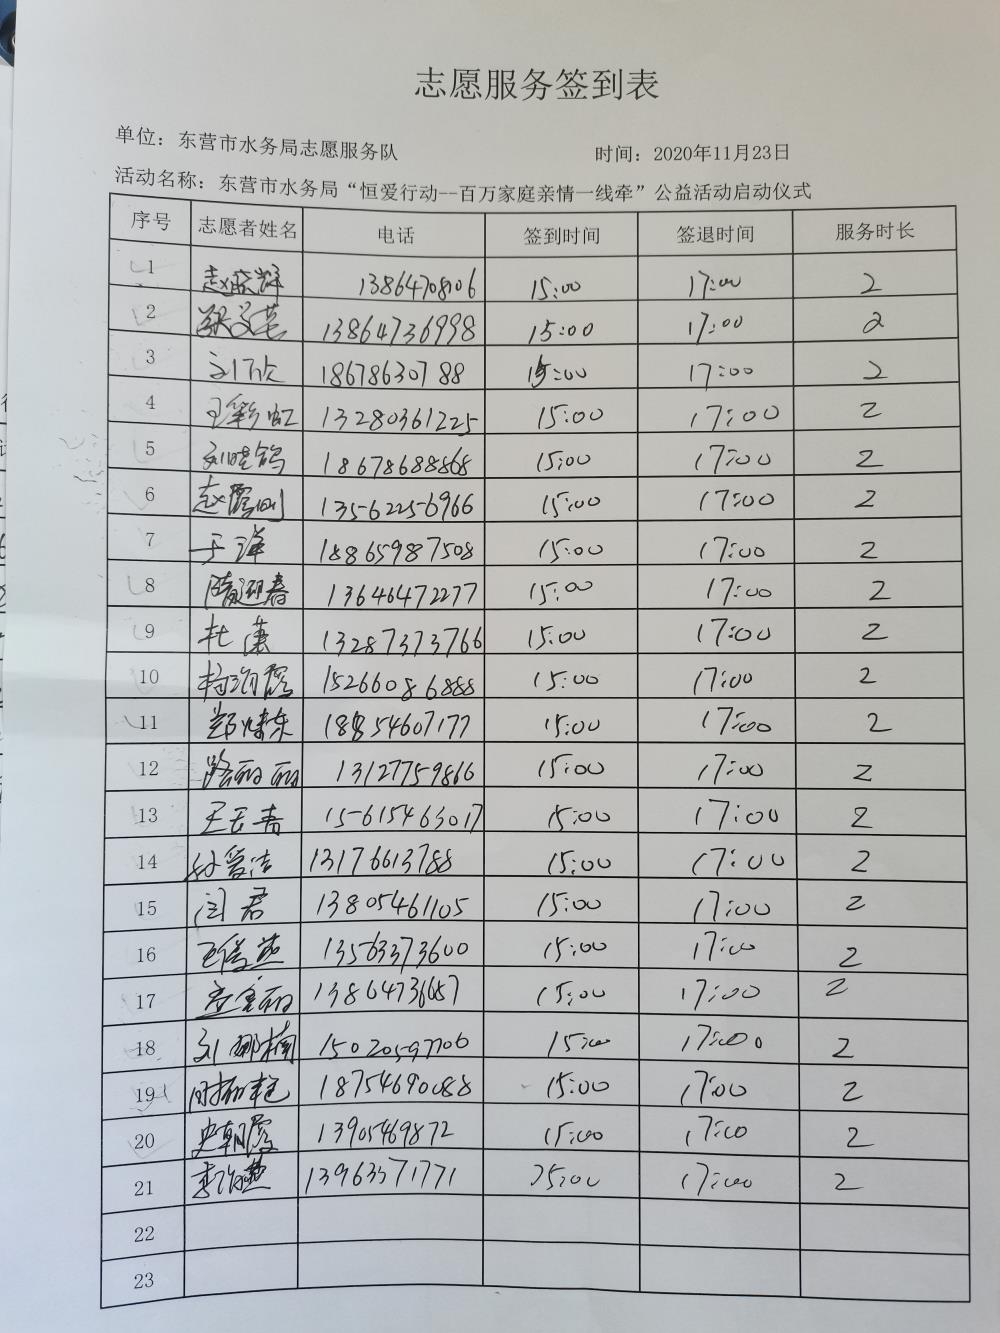 志愿服务签到表
单位：东营市水务局志愿服务队 时间：2020年11月23日
活动名称：东营市水务局“恒爱行动--百万家庭亲情一线牵”公益活动启动仪式
序号 志愿者姓名 电话 签到时间 签退时间 服务时长
1 13864708106 15:00 17:00 2
2 13864736998 15:00 17:00 2
3 18678630788 15:00 17:00 2
4 王彩虹 13280361225 15:00 17:00 2
5 刘晓鸽 18678688868 15:00 17:00 2
6 赵霞 13562256966 15:00 17:00 2
7 于洋 18865987508 15:00 17:00 2
8 隋迎春 13646472277 15:00 17:00 2
9 杜潇 13287373766 15:00 17:00 2
10 15266086888 15:00 17:00 2
11 18854607177 15:00 17:00 2
12 路丽丽 13127759866 15:00 17:00 2
13 王玉青 15615463017 15:00 17:00 2
14 孙爱洁 13176613788 15:00 17:00 2
15 闫君 13805461105 15:00 17:00 2
16 13563373600 15:00 17:00 2
17 13864736687 15:00 17:00 2
18 刘娜楠 15020597706 15:00 17:00 2
19 18754690088 15:00 17:00 2
20 史朝霞 13905469872 15:00 17:00 2
21 13963371771 15:00 17:00 2
22
23